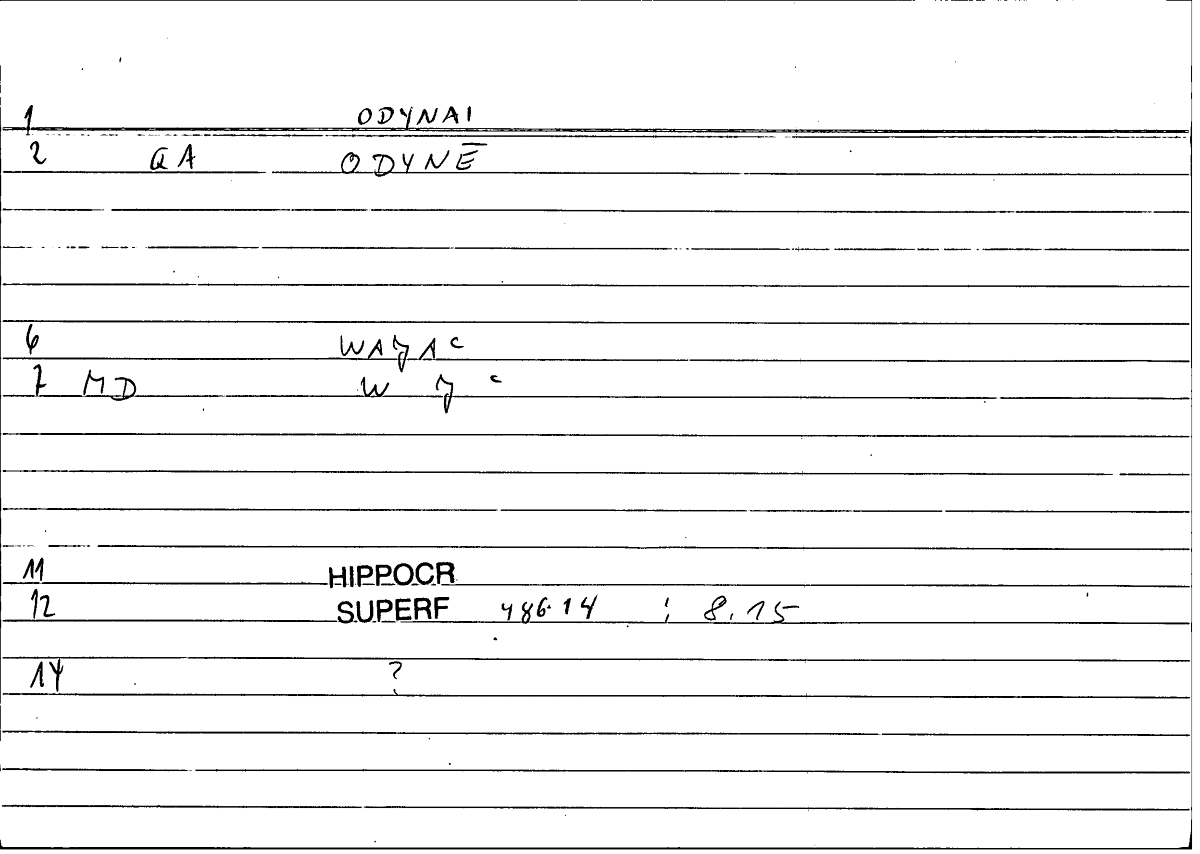 1 ODYNAI
2 QA ODYNĒ
6 WAJAᶜ
7 MD W J ᶜ
11 HIPPOCR
12 SUPERF 486.14 ; 8.15
14 ?